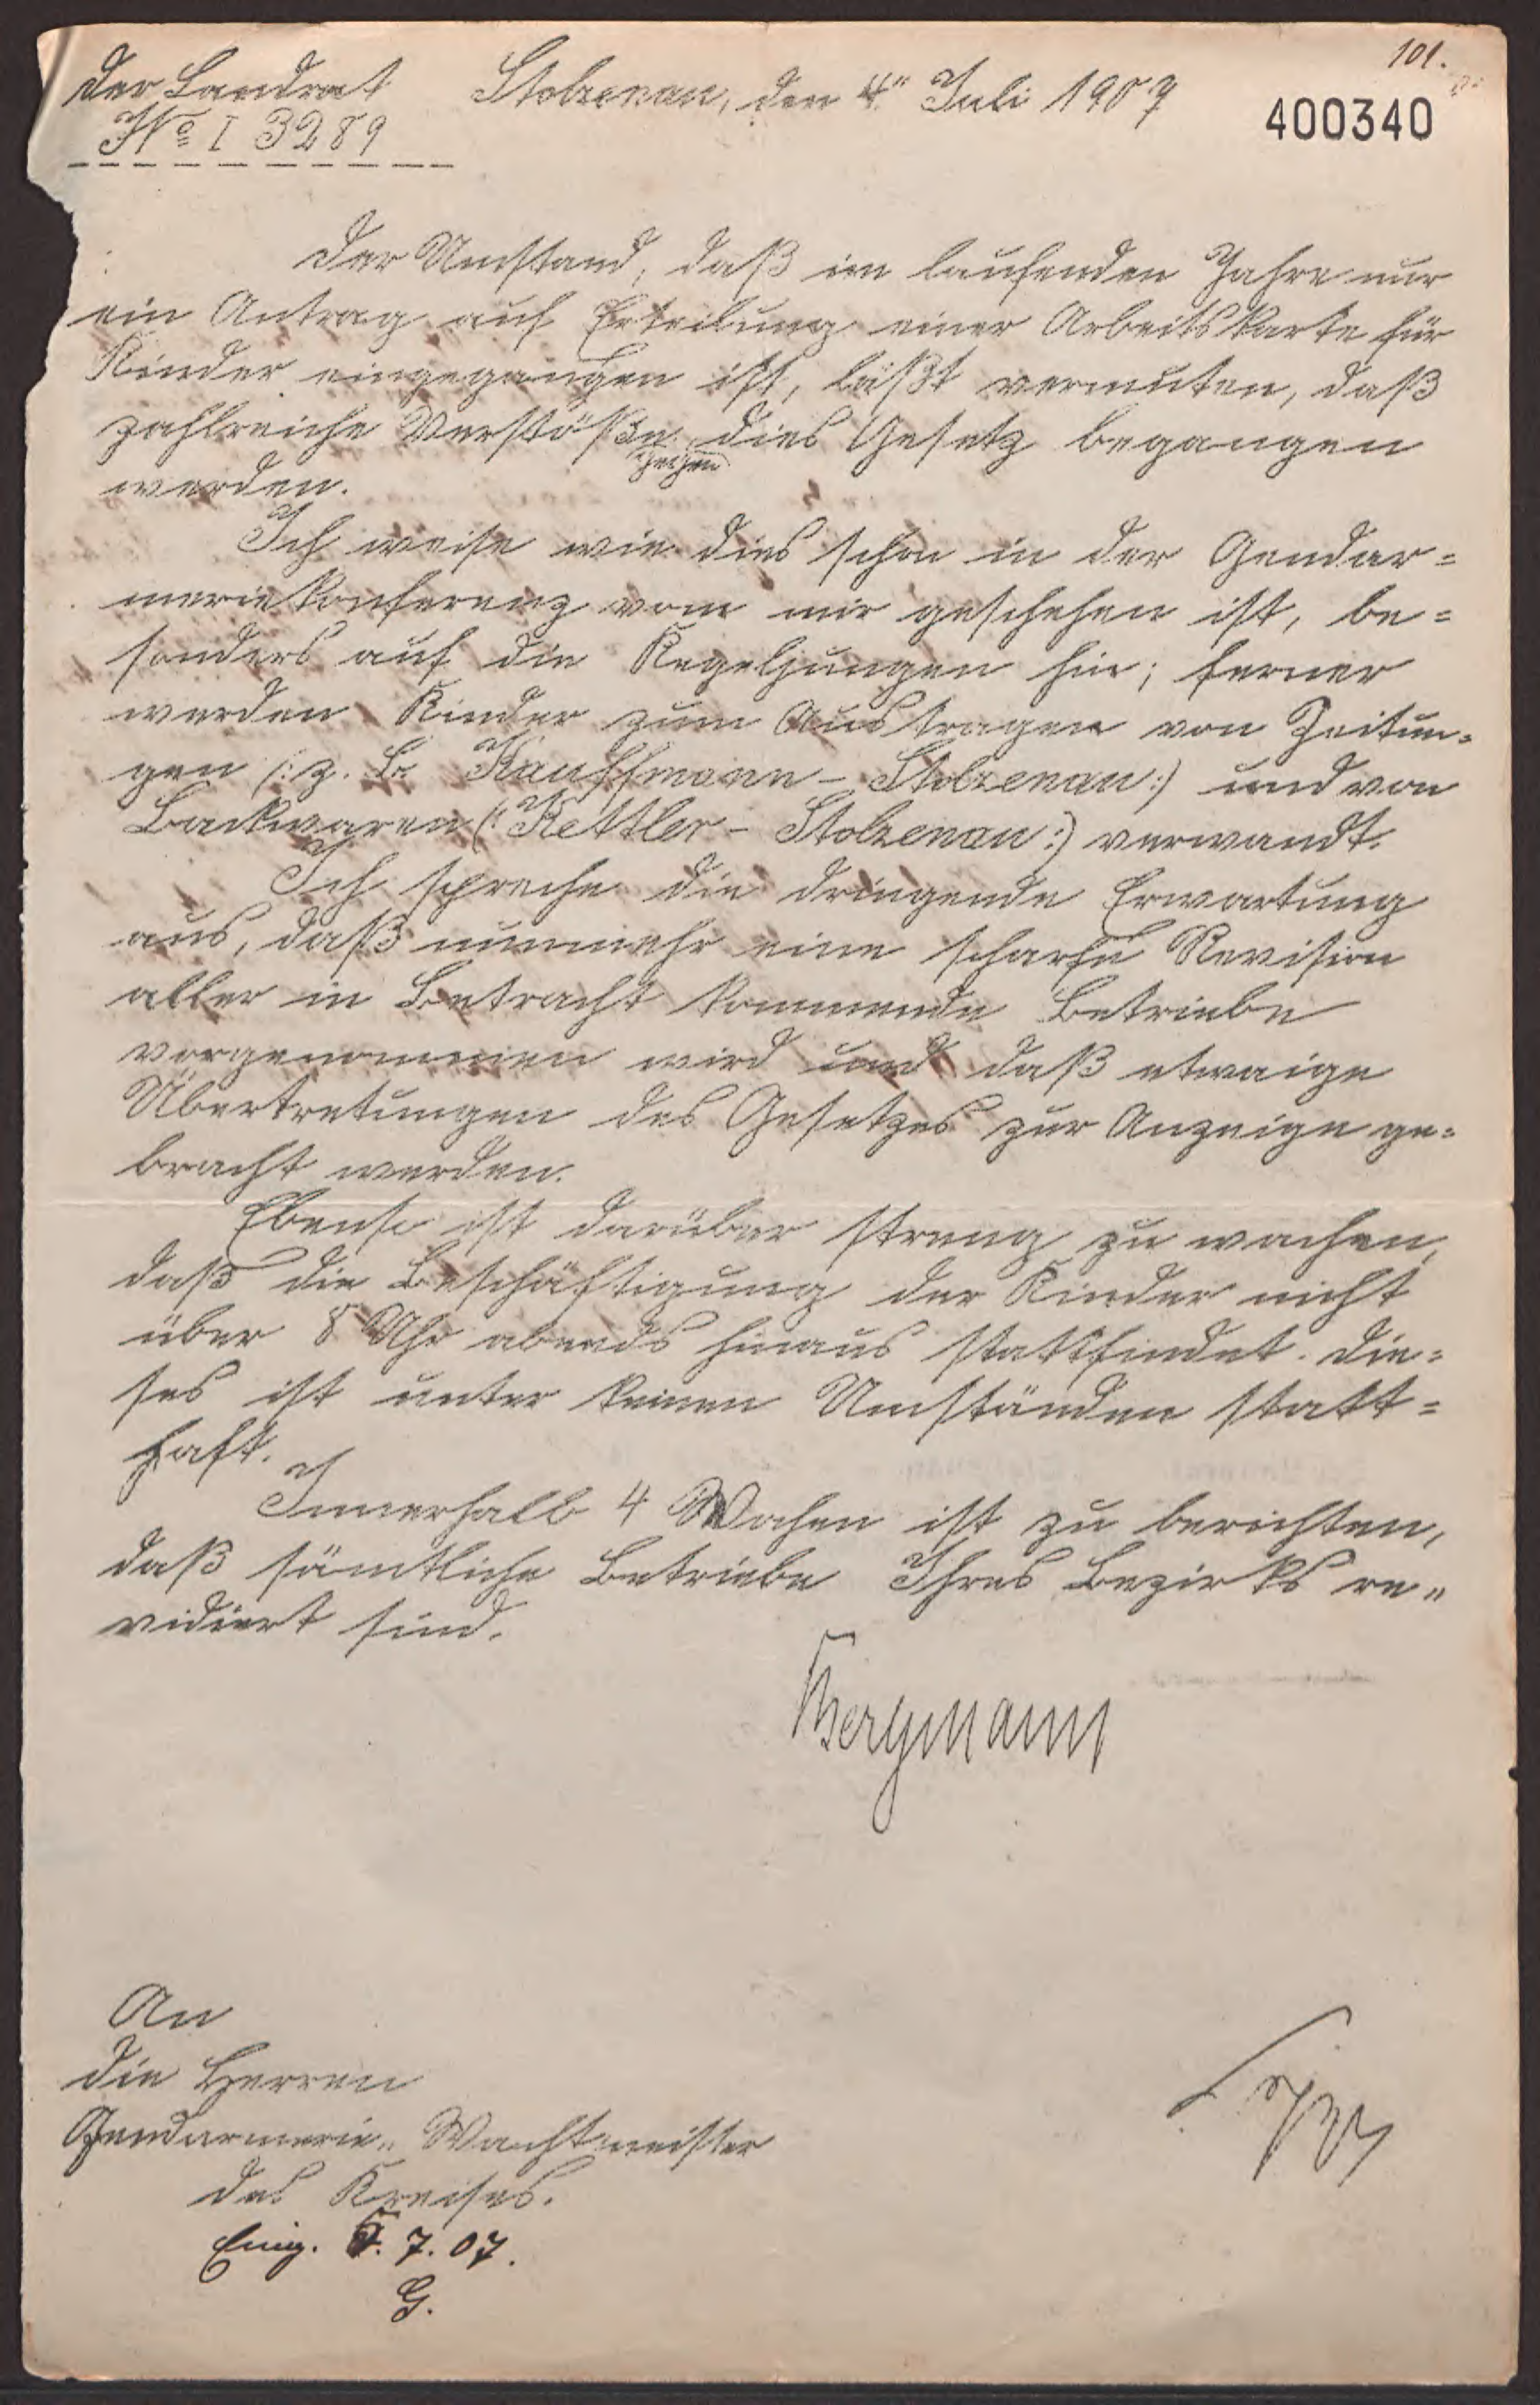 101.
Der Landrat Stolzenau, den 4" Juli 1907
400340
No I 3289
Der Umstand, daß im laufenden Jahre nur
ein Antrag auf Erteilung einer Arbeitskarte für
Kinder eingegangen ist, läßt vermuten, daß
zahlreiche Verstöße gegen dies Gesetz begangen
werden.
Ich weise wie dies schon in der Gendar=
meriekonferenz vom mir geschehen ist, be=
sonders auf die Kegeljungen hin; ferner
werden Kinder zum Austragen von Zeitun=
gen (: z. B. Kauffmann - Stolzenau :) und von
Backwaren (: Kettler - Stolzenau :) verwandt.
Ich spreche die dringende Erwartung
aus, daß nunmehr eine scharfe Revision
aller in Betracht kommende Betriebe
vorgenommen wird und daß etwaige
Übertretungen des Gesetzes zur Anzeige ge=
bracht werden.
Ebenso ist darüber streng zu wachen,
daß die Beschäftigung der Kinder nicht
über 8 Uhr abends hinaus stattfindet. Die=
ses ist unter keinen Umständen statt=
haft.
Innerhalb 4 Wochen ist zu berichten,
daß sämtliche Betriebe Ihres Bezirks re„
vidiert sind.
Bergmann
An
die Herren
Gendarmerie„ Wachtmeister
des Kreises.
Eing. 5. 7. 07.
G.